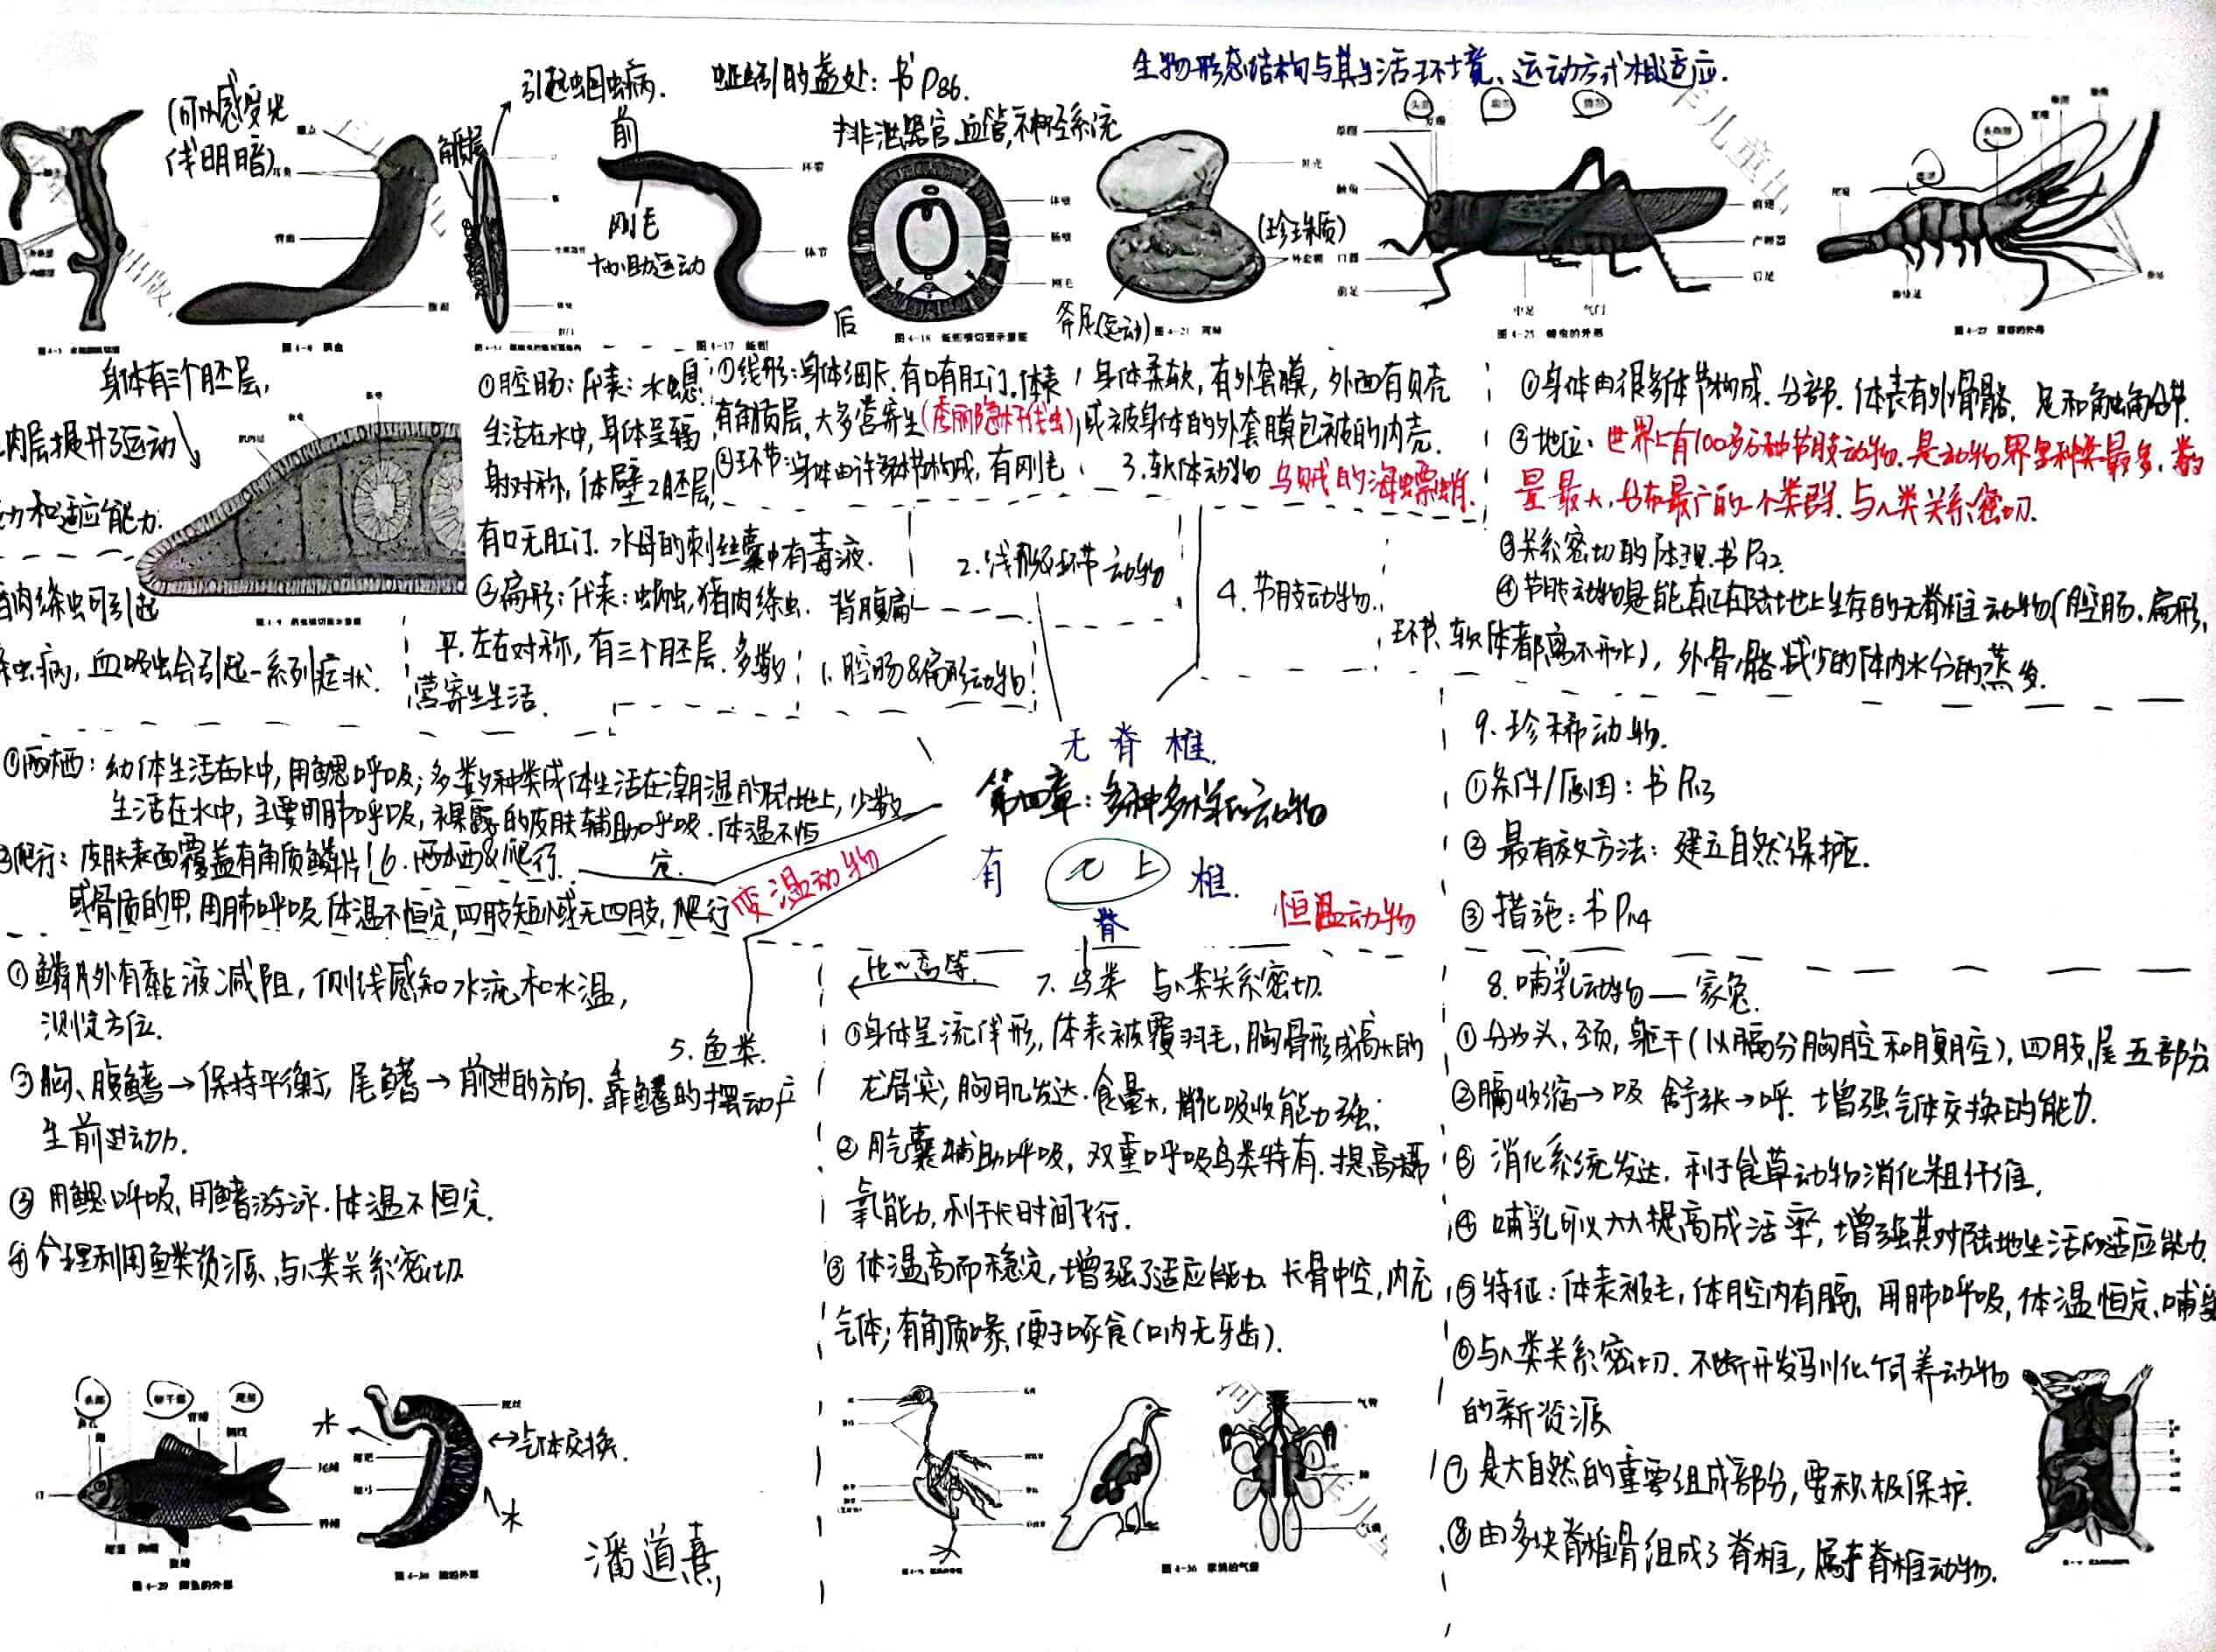 生物形态结构与其生活环境、运动方式相适应.
引起蛔虫病.
蚯蚓的益处：书P86.
(可以感受光
线明暗)
角质层
前
刚毛
协助运动
后
排泄器官,血管,神经系统
(珍珠质)
斧足(运动)
环带
体节
图 4-17 蚯蚓
图 4-18 蚯蚓横切面示意图
体腔
肠腔
刚毛
贝壳
外套膜
触角
口器
前足
中足
气门
后足
产卵器
图 4-25 蝗虫的外形
身体有三个胚层,
内层提升了运动
力和适应能力.
猪肉绦虫可引起
绦虫病, 血吸虫会引起一系列症状.
①腔肠：代表：水螅.
生活在水中, 身体呈辐
射对称, 体壁2胚层,
有口无肛门. 水母的刺丝囊中有毒液.
②扁形：代表：蜗虫, 猪肉绦虫. 背腹扁
平. 左右对称, 有三个胚层. 多数
营寄生生活.
1. 腔肠&扁形动物
①线形：身体细长. 有口有肛门. 体表
有角质层, 大多营寄生(秀丽隐杆线虫)
②环节：身体由许多体节构成, 有刚毛
2. 线形&环节动物
身体柔软, 有外套膜, 外面有贝壳
或被身体的外套膜包被的内壳.
3. 软体动物 乌贼的海螵蛸.
4. 节肢动物.
①身体由很多体节构成. 分部. 体表有外骨骼, 足和触角分节.
②地位：世界上有100多万种节肢动物. 是动物界中种类最多、数
量最大, 分布最广的一个类群. 与人类关系密切.
③关系密切的体现. 书P92.
④节肢动物是能真正在陆地上生存的无脊椎动物(腔肠.扁形,
环节、软体都离不开水), 外骨骼减少的体内水分的蒸发.
无脊椎.
第四章：多种多样的动物
有 脊 椎.
①两栖：幼体生活在水中, 用鳃呼吸; 多数种类成体生活在潮湿的陆地上, 少数
生活在水中, 主要用肺呼吸, 裸露的皮肤辅助呼吸. 体温不恒
定.
爬行：皮肤表面覆盖有角质鳞片
或骨质的甲, 用肺呼吸, 体温不恒定, 四肢短小或无四肢, 爬行
6. 两栖&爬行.
变温动物
恒温动物
9. 珍稀动物.
①条件/原因：书P113
②最有效方法：建立自然保护区.
③措施：书P114
①鳞片外有黏液减阻, 侧线感知水流和水温,
测定方位.
5. 鱼类.
②胸、腹鳍→保持平衡, 尾鳍→前进的方向. 靠鳍的摆动产
生前进动力.
③用鳃呼吸, 用鳍游泳. 体温不恒定.
④合理利用鱼类资源、与人类关系密切
7. 鸟类 与人类关系密切.
①身体呈流线形, 体表被覆羽毛, 胸骨形成高大的
龙骨突, 胸肌发达. 食量大, 消化吸收能力强.
②气囊辅助呼吸, 双重呼吸鸟类特有. 提高摄
氧能力, 利于长时间飞行.
③体温高而稳定, 增强了适应能力. 长骨中空, 内充
气体; 有角质喙, 便于啄食(口内无牙齿).
8. 哺乳动物——家兔.
①分为头, 颈, 躯干(以膈分胸腔和腹腔), 四肢, 尾五部分
②膈收缩→吸 舒张→呼. 增强气体交换的能力.
③消化系统发达, 利于食草动物消化粗纤维,
④哺乳可以大大提高成活率, 增强其对陆地生活的适应能力.
⑤特征：体表被毛, 体腔内有膈, 用肺呼吸, 体温恒定、哺乳
⑥与人类关系密切. 不断开发驯化饲养动物
的新资源
⑦是大自然的重要组成部分, 要积极保护.
⑧由多块脊椎骨组成了脊椎, 属于脊椎动物.
水
气体交换.
水
潘道熹
图 4-29 鲫鱼的外形
图 4-36 家鸽的气囊
气管
肺
气囊